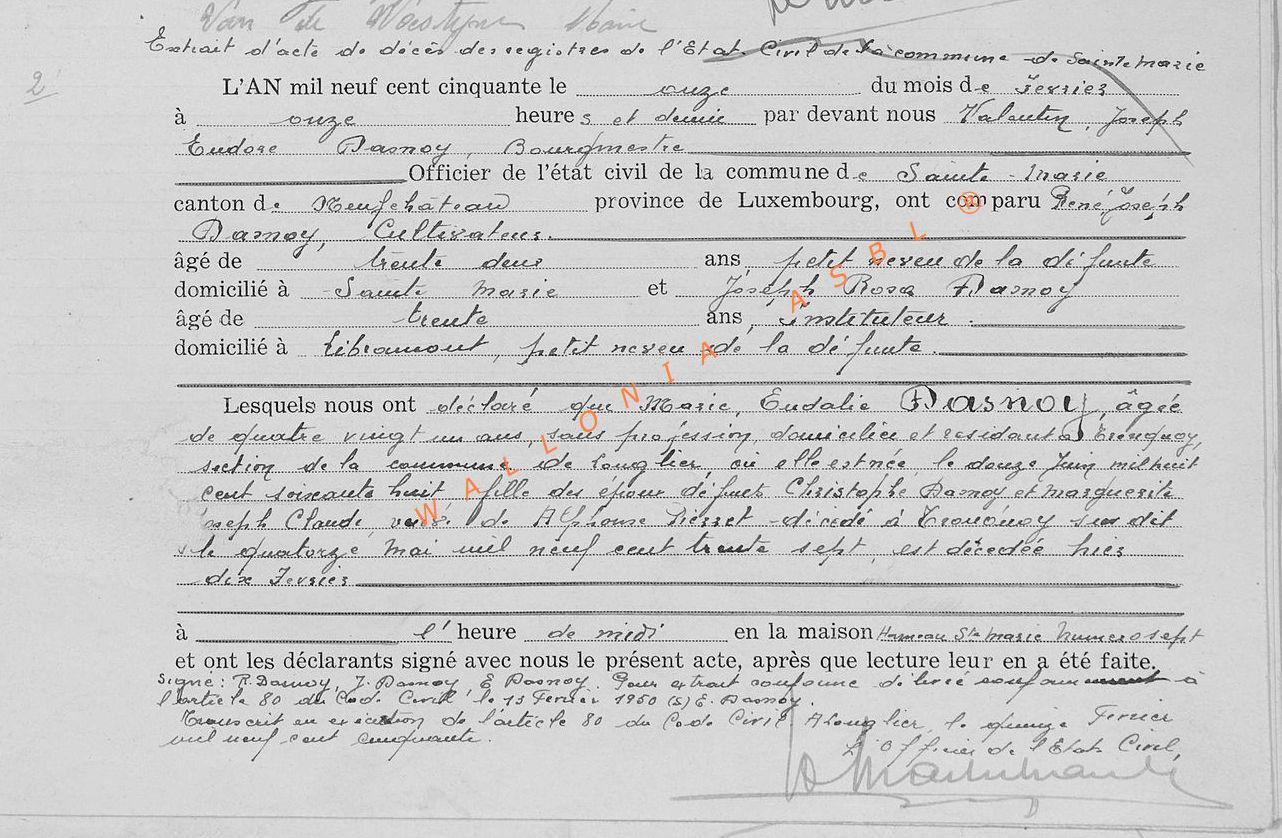 Van de Woestyne
Extrait d'acte de décès des registres de l'Etat Civil de la commune de Sainte Marie
2
L'AN mil neuf cent cinquante le onze du mois de Fevrier
à onze heures et demie par devant nous Valentin, Joseph
Eudore Dasnoy, Bourgmestre
Officier de l'état civil de la commune de Sainte-Marie
canton de Neufchâteau province de Luxembourg, ont comparu René Joseph
Dasnoy, Cultivateur.
âgé de trente deux ans, petit neveu de la défunte
domicilié à Sainte Marie et Joseph Rosa Dasnoy
âgé de trente ans, Instituteur.
domicilié à Libramont, petit neveu de la défunte.
Lesquels nous ont déclaré que Marie, Eudalie Dasnoy, âgée
de quatre vingt un ans, sans profession, domiciliée et residant à Tronquoy,
section de la commune de Longlier, où elle est née, le douze Juin mil huit
cent soixante huit, fille des époux défunts Christophe Dasnoy et Marguerite
Joseph Claude, veuve de Alphonse Pierret décédé à Tronquoy sus dit
le quatorze Mai mil neuf cent trente sept, est décedée hier
dix Fevrier
à l'heure de midi en la maison Hameau Ste Marie Numero sept
et ont les déclarants signé avec nous le présent acte, après que lecture leur en a été faite.
Signé: R. Dasnoy, J. Dasnoy, E Dasnoy. Pour extrait conforme délivré à
l'article 80 du Cod. Civil, le 13 Fevrier 1950 (s) E. Dasnoy.
Transcrit en execution de l'article 80 du Code Civil A Longlier, le quinze Fevrier
mil neuf cent cinquante.
L'Officier de l'Etat Civil,
WALLONIA ASBL ®